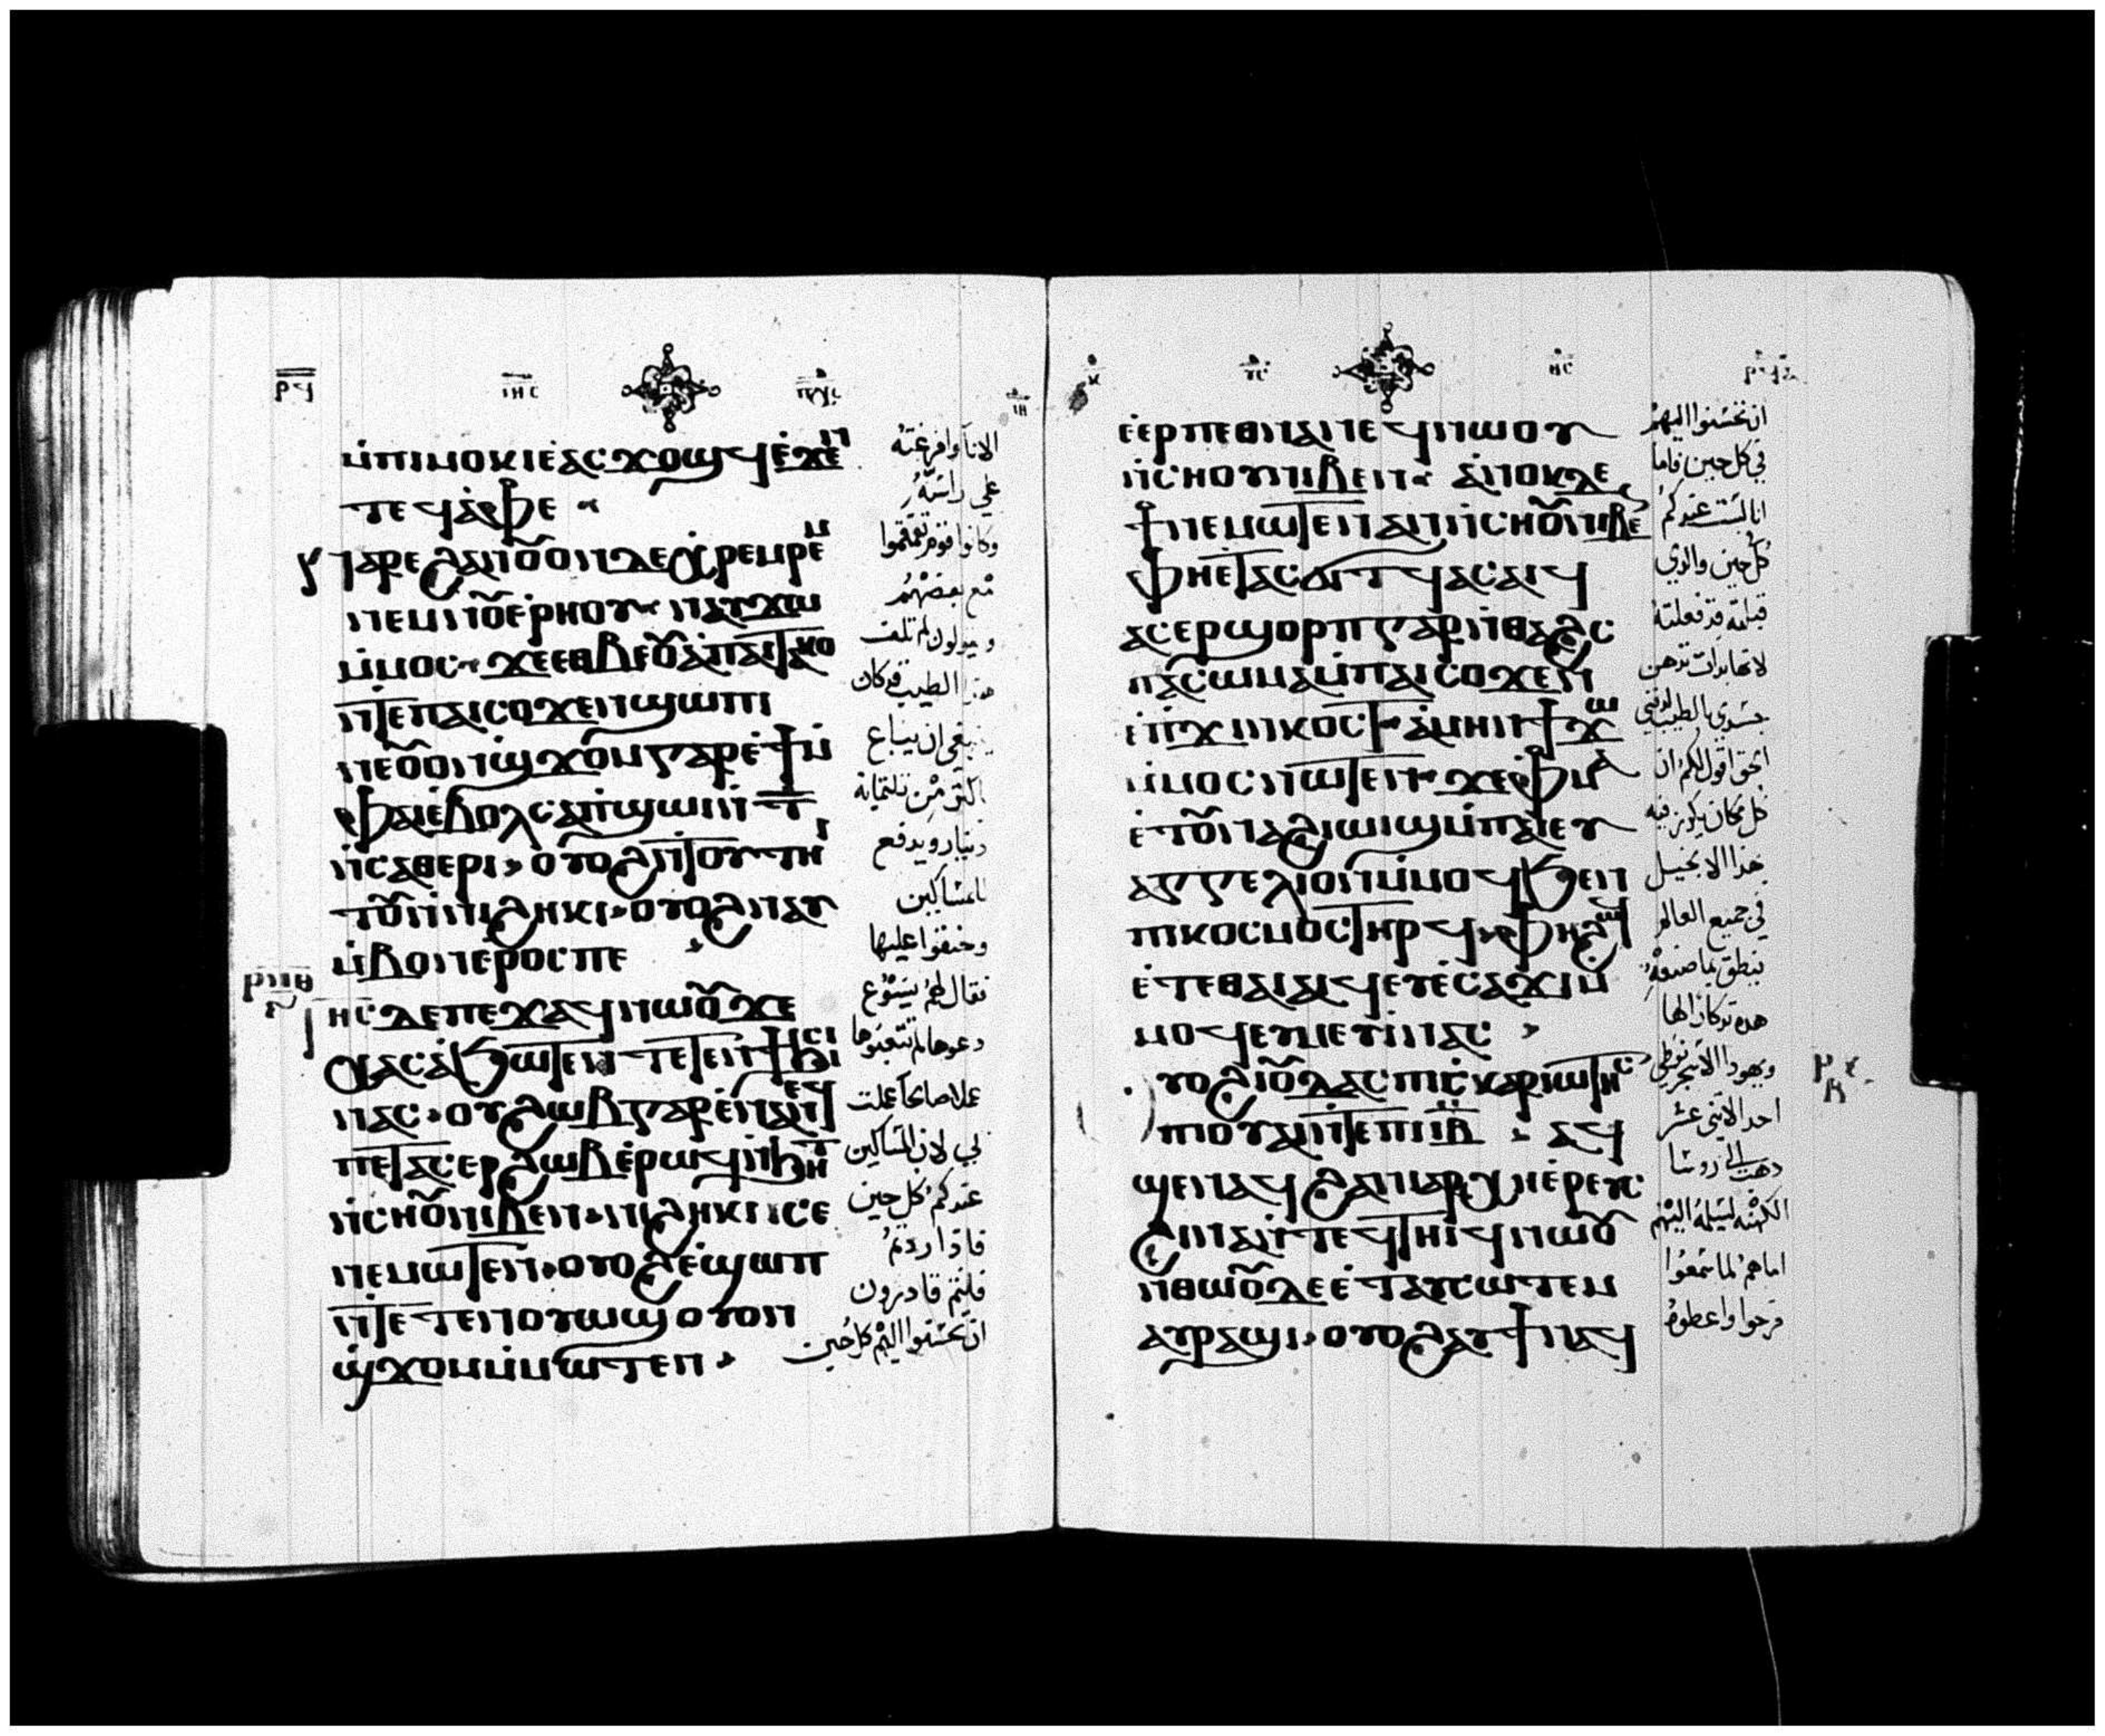 ⲣϥ ⲓⲏⲥ ⲡⲭⲥ
ⲙ̇ⲡⲓⲙⲟⲕⲓ ⲉⲁⲥϫⲟϣϥ ⲉ̇ϫⲉⲛ
ⲧⲉϥⲁ̇ⲫⲉ
ⲛⲁⲣⲉ ϩⲁⲛⲟⲩⲟⲛ ⲇⲉ ⲭ̇ⲣⲉⲙⲣⲉⲙ
ⲛⲉⲙ ⲛⲟⲩⲉ̇ⲣⲏⲟⲩ ⲛⲁⲩϫⲱ
ⲙ̇ⲙⲟⲥ ϫⲉ ⲉⲑⲃⲉⲟⲩ ⲁ̇ ⲡⲁⲓⲧⲁⲕⲟ
ⲛ̇ⲧⲉ ⲡⲁⲓⲥⲟϫⲉⲛ ϣⲱⲡⲓ
ⲛⲉ ⲟⲩⲟⲛ ϣϫⲟⲙ ⲅⲁⲣ ⲉ̇ϯ ⲙ̇
ⲫⲁⲓ ⲉ̇ⲃⲟⲗ ⲥⲁⲡ̇ϣⲱⲓ ⲛ̇ ⲧ̅
ⲛ̇ⲥⲁⲑⲉⲣⲓ ⲟⲩⲟϩ ⲛ̇ⲧⲟⲩⲧⲏⲓ
ⲧⲟⲩ ⲛ̇ⲛⲓϩⲏⲕⲓ ⲟⲩⲟϩ ⲛⲁⲩ
ⲙ̇ⲃⲟⲛ ⲉ̇ⲣⲟⲥ ⲡⲉ
ⲓⲏⲥ ⲇⲉ ⲡⲉϫⲁϥ ⲛⲱⲟⲩ ϫⲉ
ⲭⲁⲥ ⲁ̇ϧⲱⲧⲉⲛ ⲧⲉⲧⲉⲛϯϧⲓⲥⲓ
ⲛⲁⲥ ⲟⲩϩⲱⲃ ⲅⲁⲣ ⲉ̇ⲛⲁⲛⲉϥ
ⲡⲉⲧⲁⲥⲉⲣϩⲱⲃ ⲉ̇ⲣⲟϥ ⲛ̇ϧⲏⲧ
ⲛ̇ⲥⲏⲟⲩ ⲛⲓⲃⲉⲛ ⲛⲓϩⲏⲕⲓ ⲥⲉ
ⲛⲉⲙⲱⲧⲉⲛ ⲟⲩⲟϩ ⲉ̇ϣⲱⲡ
ⲛ̇ⲧⲉⲧⲉⲛⲟⲩⲱϣ ⲟⲩⲟⲛ
ϣ̇ϫⲟⲙ ⲙ̇ⲙⲱⲧⲉⲛ
الانا وافرغته
علي راسه
وكانوا قوم تقمقموا
مع بعضهم
ويقولون لم تلف
هذا الطيب قد كان
ينبغي ان يباع
باكثر من ثلثماية
دينار ويدفع
للمساكين
وحنقوا عليها
فقال لهم يسوع
دعوها لم تتعبوها
عملا صالحا عملت
بي لان المساكين
عندكم كل حين
فاذا اردتم
فانتم قادرون
ان تحسنوا اليهم كل حين
ⲓⲏ
ⲕ ⲩⲥ ⲑⲥ
ⲉ̇ⲉⲣⲡⲉⲑⲛⲁⲛⲉϥ ⲛⲱⲟⲩ
ⲛ̇ⲥⲏⲟⲩ ⲛⲓⲃⲉⲛ ⲁ̇ⲛⲟⲕ ⲇⲉ
ϯⲛⲉⲙⲱⲧⲉⲛ ⲁⲛ ⲛ̇ⲥⲏⲟⲩ ⲛⲓⲃⲉⲛ
ⲫⲏ ⲉⲧⲁⲥϭⲓⲧϥ ⲁⲥⲁⲓϥ
ⲁⲥⲉⲣϣⲟⲣⲡ ⲅⲁⲣ ⲛ̇ⲑⲁϩⲥ
ⲡⲁⲥⲱⲙⲁ ⲙ̇ⲡⲁⲓⲥⲟϫⲉⲛ
ⲉ̇ⲡϫⲓⲛⲕⲟⲥⲧ ⲁ̇ⲙⲏⲛ ϯϫⲱ
ⲙ̇ⲙⲟⲥ ⲛⲱⲧⲉⲛ ϫⲉ ⲫⲙⲁ
ⲉ̇ⲧⲟⲩⲛⲁϩⲓⲱⲓϣ ⲙ̇ⲡⲁⲓⲉⲩ
ⲁⲅⲅⲉⲗⲓⲟⲛ ⲙ̇ⲙⲟϥ ϧⲉⲛ
ⲡⲓⲕⲟⲥⲙⲟⲥ ⲧⲏⲣϥ ⲫⲏ ϩⲱϥ
ⲉ̇ⲧⲉ ⲑⲁⲓ ⲁⲓϥ ⲉⲩⲉ̇ⲥⲁϫⲓ ⲙ̇
ⲙⲟϥ ⲉⲩⲙⲉⲩⲓ̇ ⲛⲁⲥ
ⲟⲩⲟϩ ⲓⲟⲩⲇⲁⲥ ⲡⲓⲥⲕⲁⲣⲓⲱⲧⲏⲥ
ⲡⲓⲟⲩⲁⲓ ⲛ̇ⲧⲉ ⲡⲓⲓ̅ⲃ̅ ⲁϥ
ϣⲉⲛⲁϥ ϩⲁ ⲛⲓⲁⲣⲭⲏⲉ̇ⲣⲉⲩⲥ
ϩⲓⲛⲁ ⲛ̇ⲧⲉϥⲧⲏⲓϥ ⲛⲱⲟⲩ
ⲛⲑⲱⲟⲩ ⲇⲉ ⲉ̇ⲧⲁⲩⲥⲱⲧⲉⲙ
ⲁⲩⲣⲁϣⲓ ⲟⲩⲟϩ ⲁⲩϯ ⲛⲁϥ
ان تحسنوا اليهم
في كل حين فاما
انا لست عندكم
كل حين والذي
لانها بدات تدهن
جسدي بالطيب لدفني
الحق اقول لكم ان
كل مكان يكرز فيه
هذا الانجيل
في جميع العالم
ينطق بما صنعته
هذه تذكارا لها
ويهودا الاسخريوطي
احد الاثني عشر
ذهب الي روسا
الكهنه ليسلمه اليهم
اما هم لما سمعوا
فرحوا واعطوه